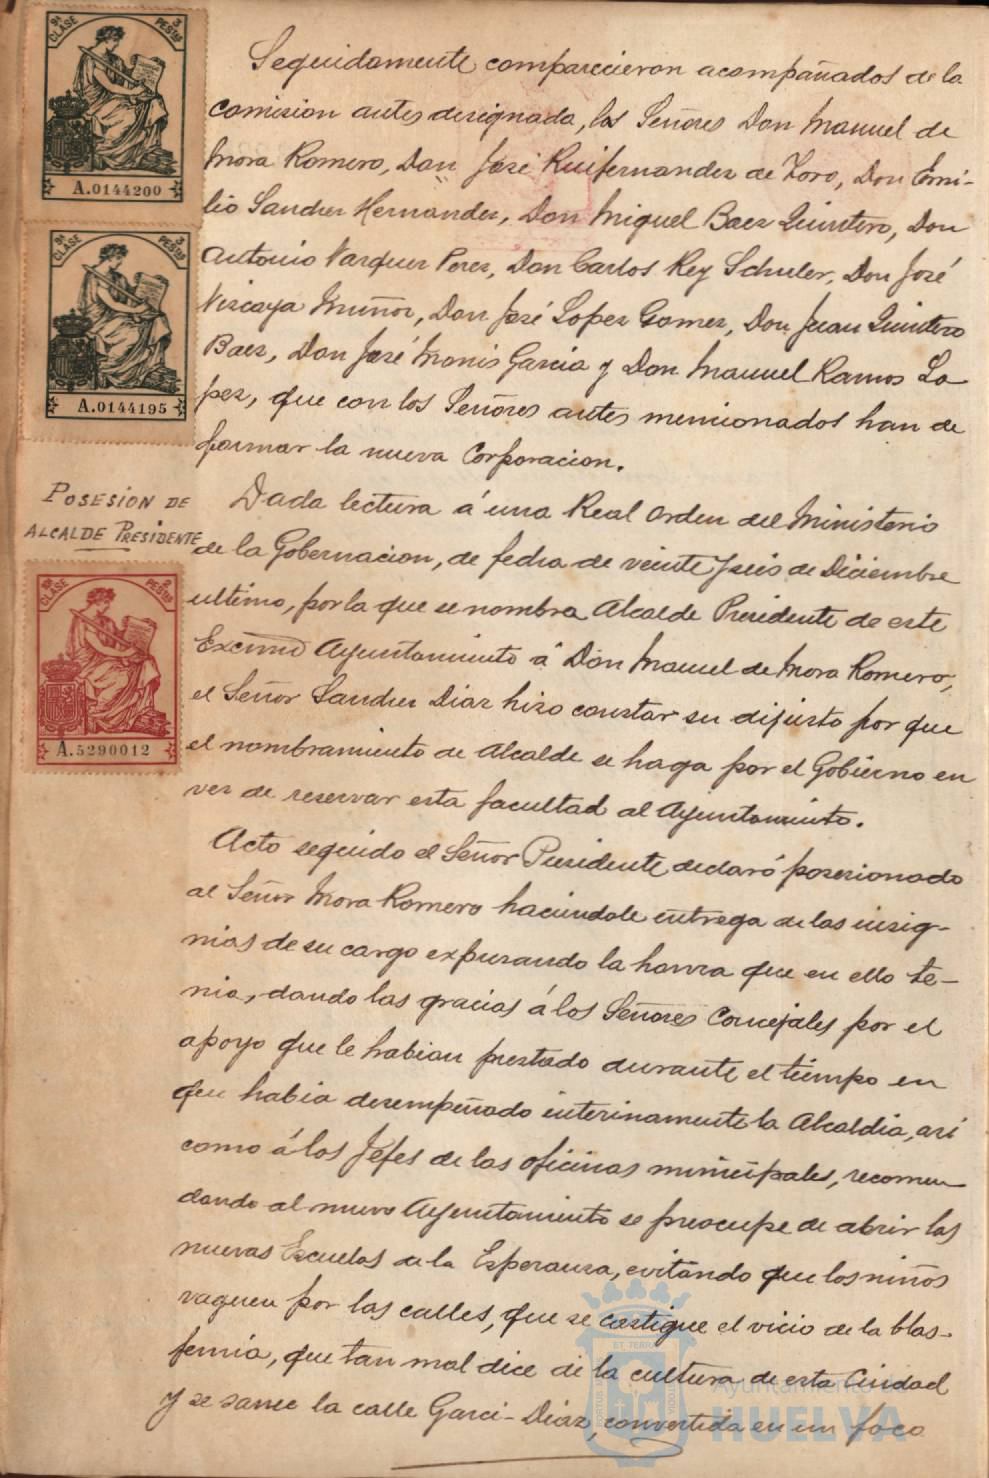 9ª CLASE 3 PESTAS
A.0144200
9ª CLASE 3 PESTAS
A.0144195
POSESION DE
ALCALDE PRESIDENTE
10ª CLASE 2 PESTAS
A.5290012
Seguidamente comparecieron acompañados de la
comision antes designada, los Señores Don Manuel de
Mora Romero, Don José Ruifernandez de Toro, Don Emi-
lio Sanchez Hernandez, Don Miguel Baez Quintero, Don
Antonio Vazquez Perez, Don Carlos Rey Schuler, Don José
Vizcaya Muñoz, Don José Lopez Gomez, Don Juan Quintero
Baez, Don José Monis Garcia y Don Manuel Ramos Lo
pez, que con los Señores antes mencionados han de
formar la nueva Corporacion.
Dada lectura á una Real orden del Ministerio
de la Gobernacion, de fecha de veinte y seis de Diciembre
ultimo, por la que se nombra Alcalde Presidente de este
Excmo Ayuntamiento á Don Manuel de Mora Romero,
el Señor Sanchez Diaz hizo constar su disjusto por que
el nombramiento de Alcalde se haga por el Gobierno en
vez de reservar esta facultad al Ayuntamiento.
Acto seguido el Señor Presidente declaró posesionado
al Señor Mora Romero haciendole entrega de las insig-
nias de su cargo expresando la honra que en ello te-
nia, dando las gracias á los Señores Concejales por el
apoyo que le habian prestado durante el tiempo en
que habia desempeñado interinamente la Alcaldia, asi
como á los Jefes de las oficinas municipales, recomen
dando al nuevo Ayuntamiento se preocupe de abrir las
nuevas Escuelas de la Esperanza, evitando que los niños
vaguen por las calles, que se castigue el vicio de la blas-
femia, que tan mal dice de la cultura de esta Ciudad
y se sanee la calle Garci-Diaz, convertida en un foco
Ayuntamiento de
HUELVA